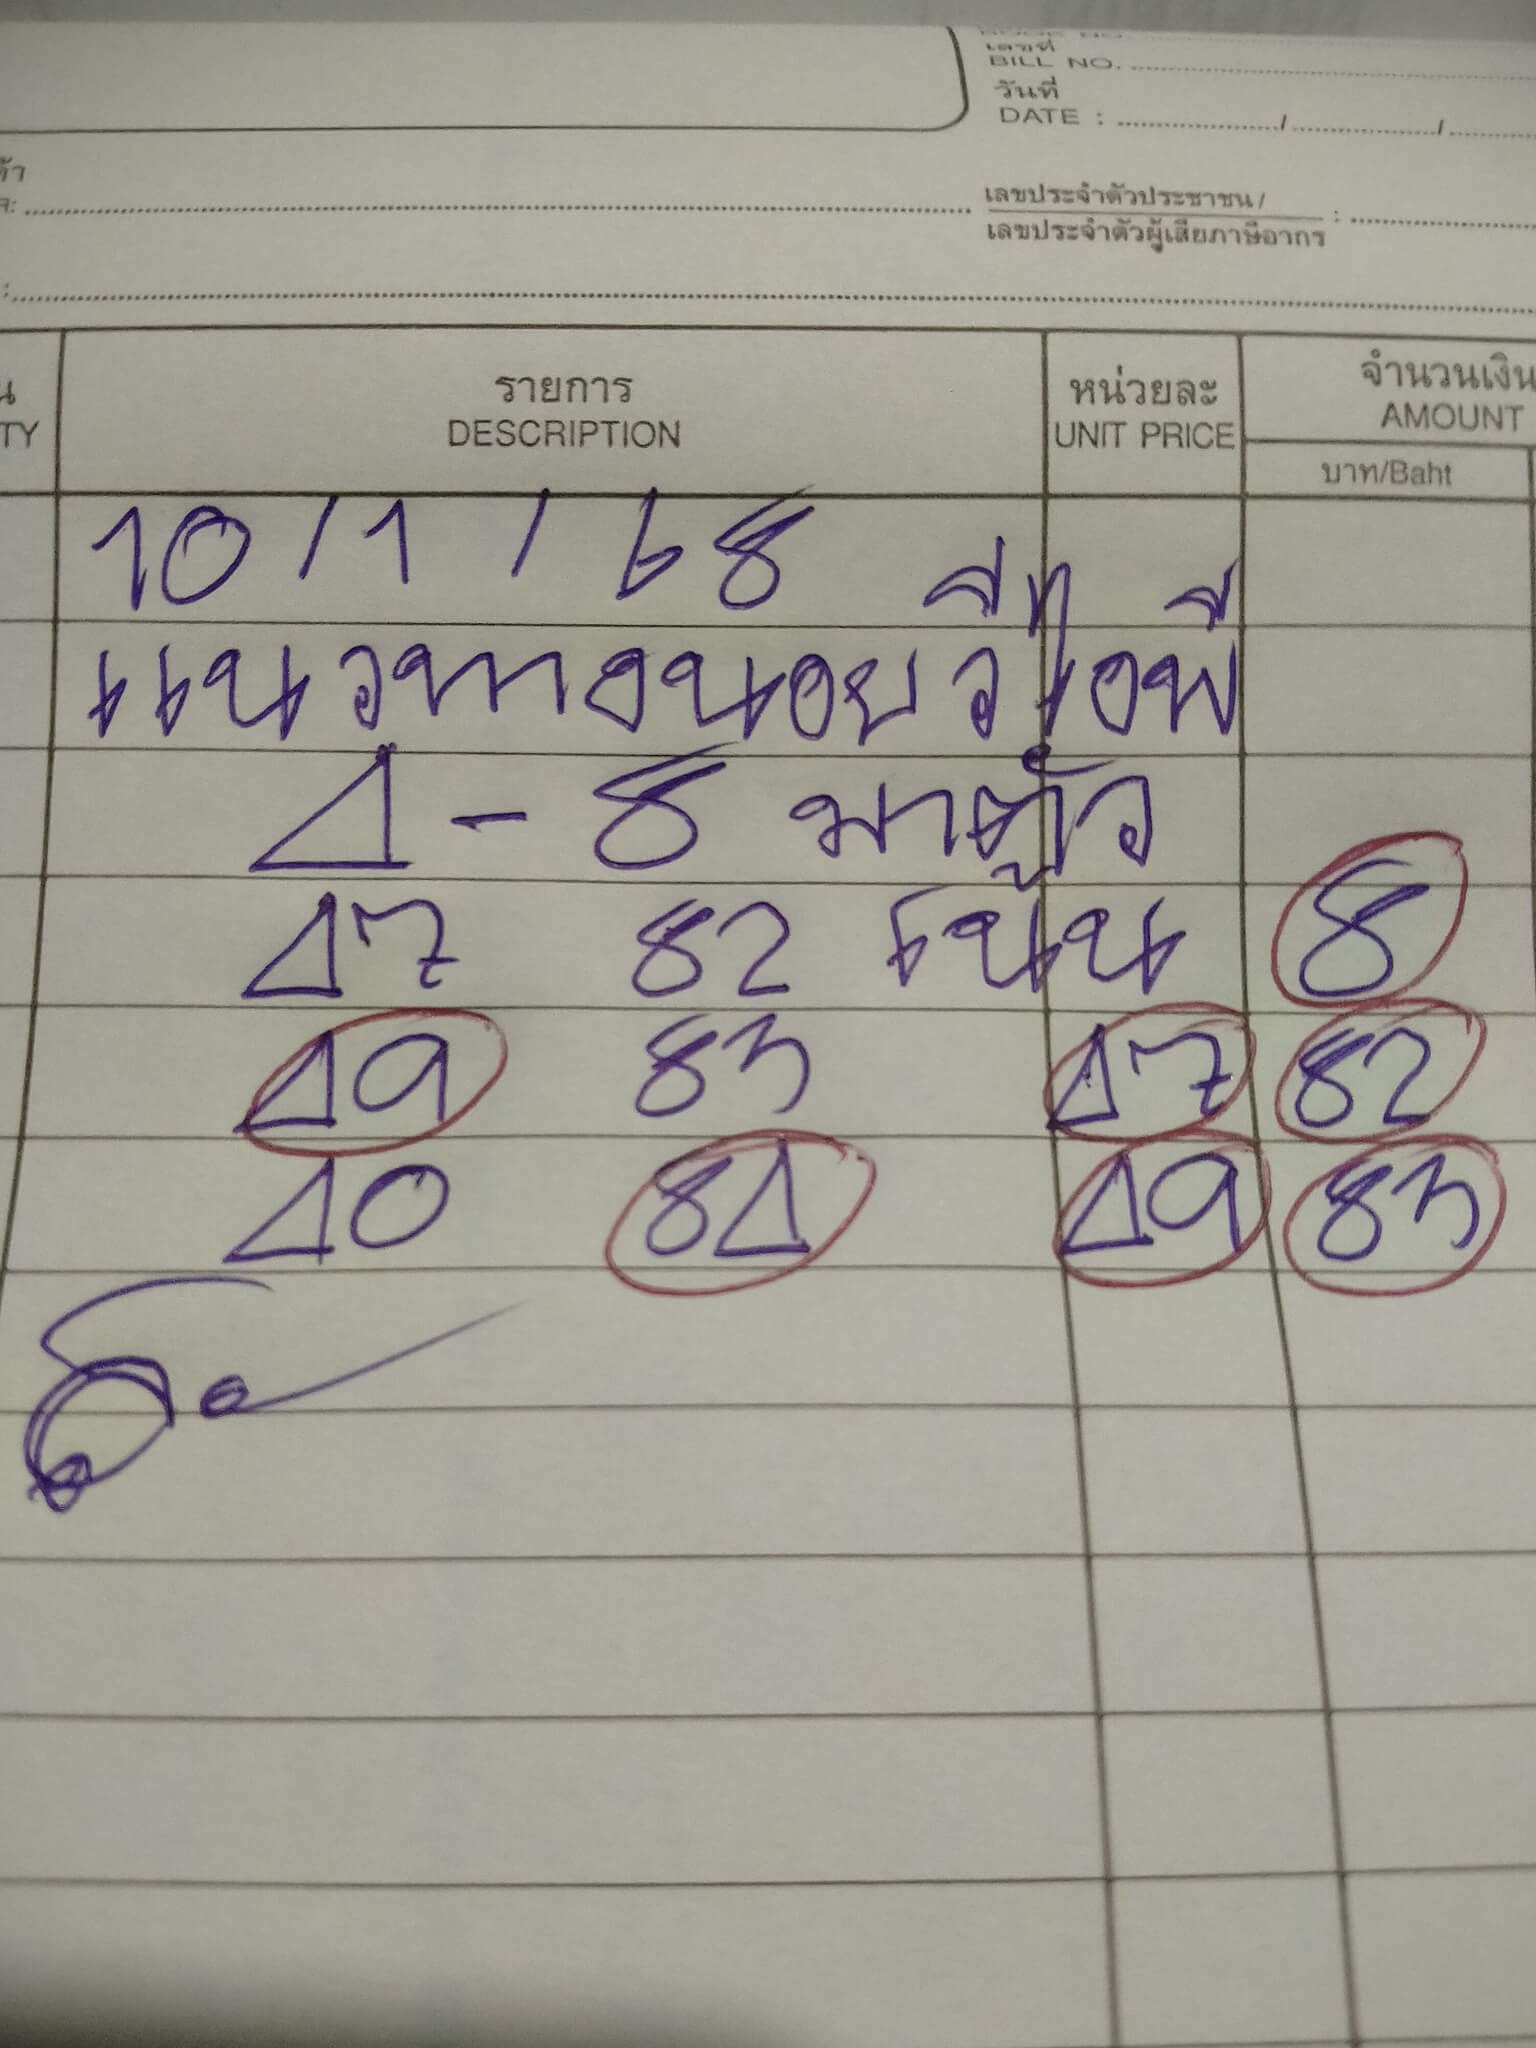 เลขที่
BILL NO.
วันที่
DATE : / /
เลขประจำตัวประชาชน /
เลขประจำตัวผู้เสียภาษีอากร :
รายการ หน่วยละ จำนวนเงิน
DESCRIPTION UNIT PRICE AMOUNT
บาท/Baht
10 / 1 / 68
แนวทางนอยวีไอพี
4 - 8 มาตัว
47 82 เน้น 8
49 83 47 82
40 84 49 83